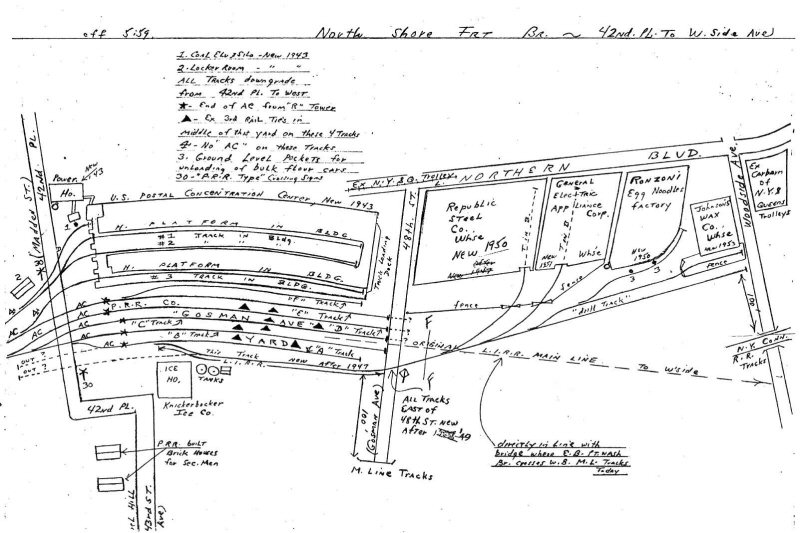 off 5:59.
North Shore Frt Br. ~ 42nd. Pl. To W. Side Ave)
1. Coal Elv & Silo - New 1943
2. Locker Room - " "
All Tracks downgrade
from 42nd Pl. To West
★ - End of AC from "R" Tower
▲ - Ex 3rd Rail Ties in
middle of this yard on these 4 Tracks
4 - No "AC" on these Tracks
3. Ground Level Pockets for
unloading of bulk flour cars
30 - "P.R.R. Type" Crossing Signs
(Madden St.) 42nd. PL.
Power Ho.
New '43
1
2
U.S. Postal Concentration Center, New 1943
H. PLATFORM IN BLDG
#1 Track IN Bldg
#2 " " "
H. PLATFORM IN BLDG.
#3 Track IN BLDG.
Truck Loading Dock
48th. St.
Ex N.Y. & Q. Trolley L.
NORTHERN BLVD.
Republic
Steel
Co..
Whse
NEW 1950
General
Electric
Appliance
Corp.
Whse
New 1951
Ronzoni
Egg Noodles
factory
New 1950
3 3
Johnson's
Wax
Co..
Whse
New 1953
Woodside Ave.
Ex
Carbarn
of N.Y. & Queens
Trolleys
fence
fence
"drill Track"
100'
N.Y. Conn.
R.R.
Tracks
P.R.R. Co.
"F" Track
"E" Track
"GOSMAN AVE
"D" Track
"C" Track
"B" Track
YARD"
"A" Track
AC
AC
AC
AC
Out ?
Out ?
This Track Now After 1947
L.I.R.R.
ORIGINAL L.I.R.R. MAIN LINE TO W'side
30
ICE
HO.
Tanks
Knickerbocker
Ice Co.
42nd PL.
P.R.R. built
Brick Houses
for Sec. Men
43RD ST.
Ave)
100'
(Gosman Ave)
M. Line Tracks
All Tracks
EAST of
48th St. New
After
directly in line with
bridge where E.B. Pt. Wash
Br. crosses W.B. M.L. Tracks
Today